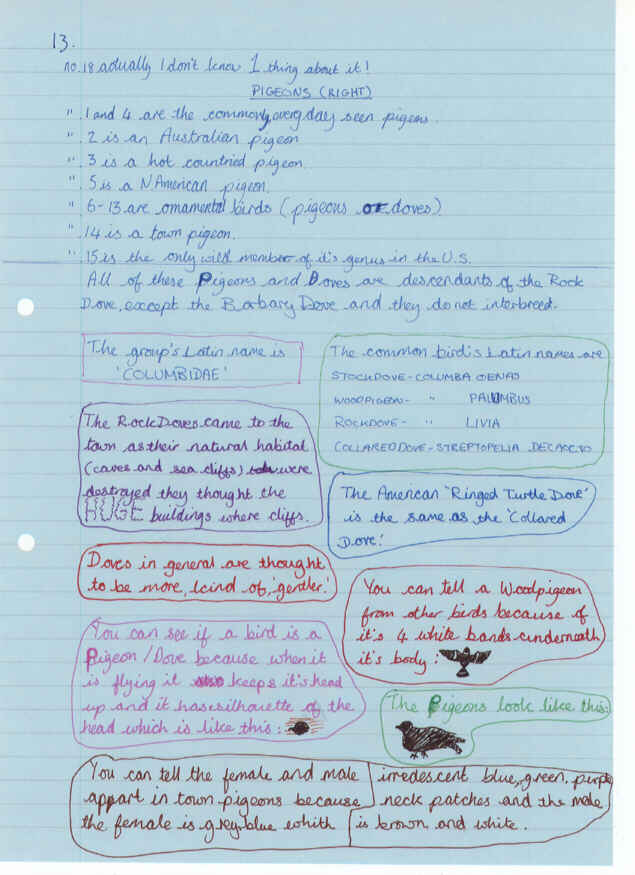 13.
no.18 actually I don't know 1 thing about it!
PIGEONS (RIGHT)
" 1 and 4 are the commonly, every day seen pigeons.
" 2 is an Australian pigeon
" 3 is a hot countried pigeon.
" 5 is a N American pigeon.
" 6-13 are ornamental birds (pigeons or doves)
" 14 is a town pigeon.
" 15 is the only wild member of it's genus in the U.S.
All of these Pigeons and Doves are descendants of the Rock
Dove, except the Barbary Dove and they do not interbreed.
The group's Latin name is
'COLUMBIDAE'
The common bird's Latin names are
STOCKDOVE - COLUMBA OENAS
WOODPIGEON - " PALUMBUS
ROCKDOVE - " LIVIA
COLLARED DOVE - STREPTOPELIA DECAOCTO
The Rock Doves came to the
town as their natural habital
(caves and sea cliffs) were
destroyed they thought the
HUGE buildings where cliffs.
The American 'Ringed Turtle Dove'
is the same as the 'Collared
Dove'.
Doves in general are thought
to be more, kind of, 'gentler.'
You can tell a Woodpigeon
from other birds because of
it's 4 white bands underneath
it's body:
You can see if a bird is a
Pigeon/Dove because when it
is flying it keeps it's head
up and it has silhouette of the
head which is like this:
The Pigeons look like this:
You can tell the female and male
appart in town pigeons because
the female is grey-blue whith
irredescent blue, green, purple
neck patches and the male
is brown and white.